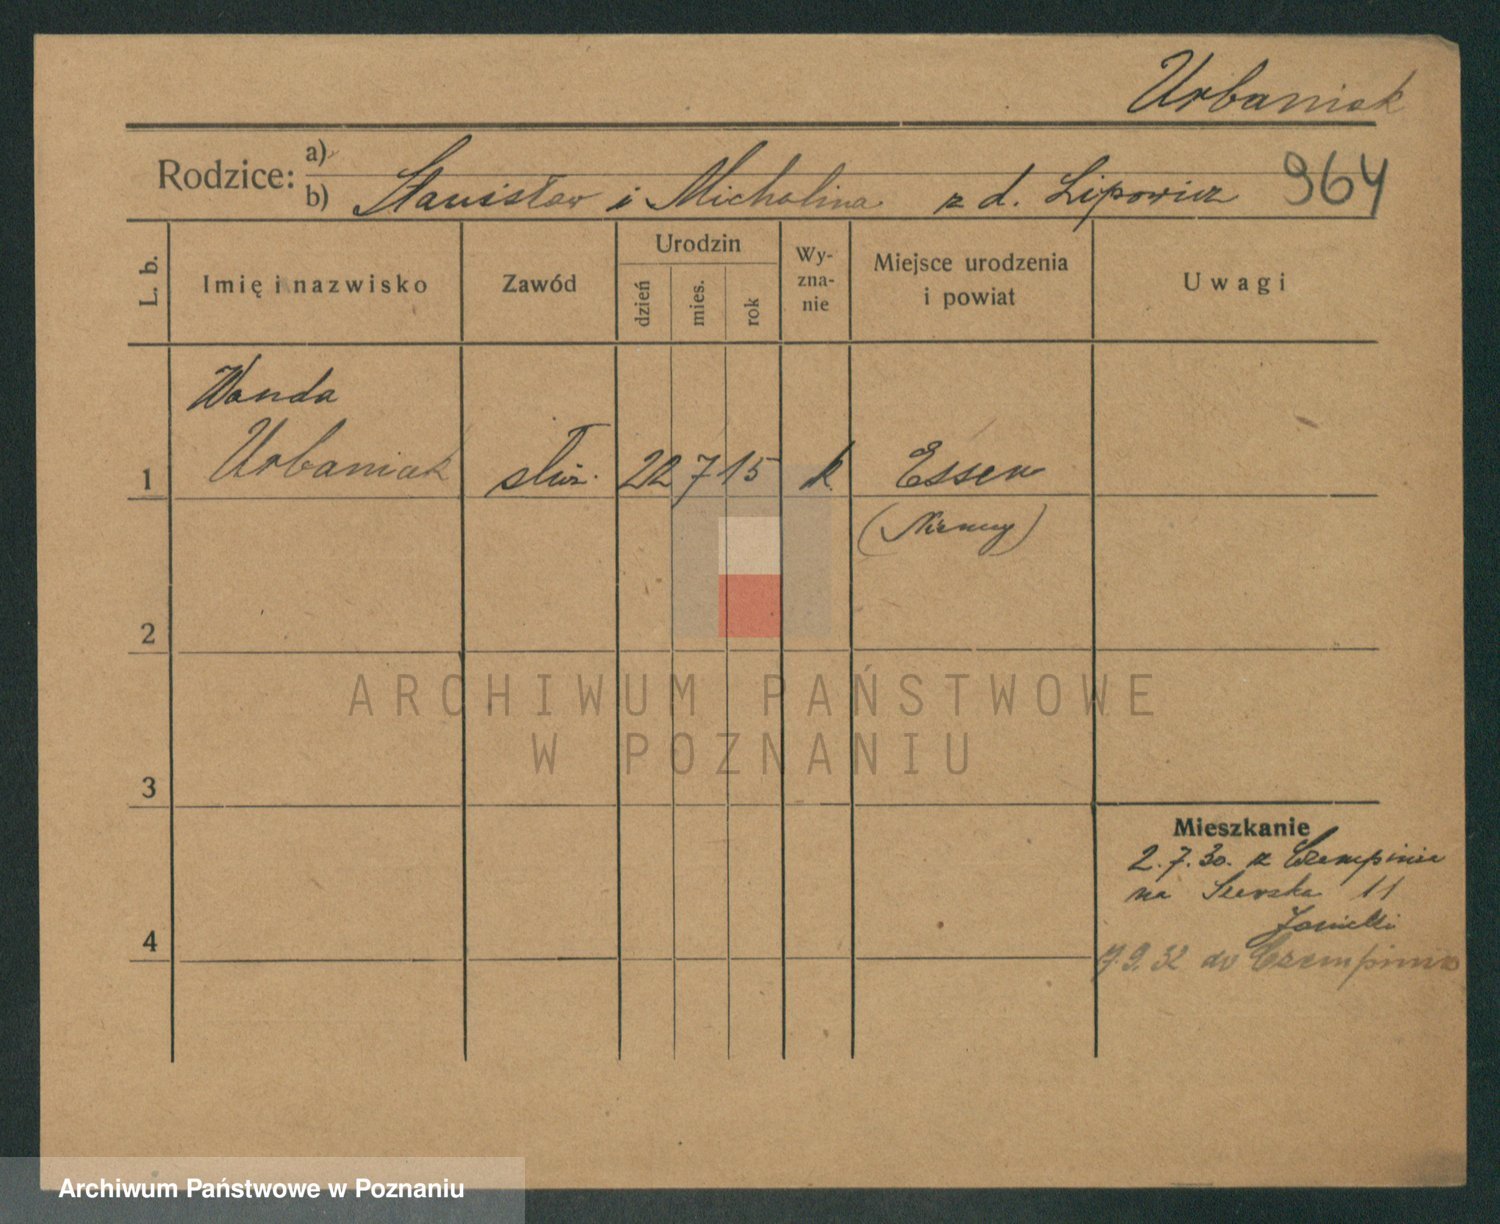 Urbaniak
Rodzice:
a)
b) Stanisław i Michalina z d. Lipowicz
964
L. b.
Imię i nazwisko
Zawód
Urodzin
dzień
mies.
rok
Wy-
zna-
nie
Miejsce urodzenia
i powiat
Uwagi
Wanda
1 Urbaniak służ. 22 7 15 k Essen
(Niemcy)
2
ARCHIWUM PAŃSTWOWE
W POZNANIU
3
Mieszkanie
2.7.30. z Czempinia
na 11
4
7.9.32 do Czempinia
Archiwum Państwowe w Poznaniu